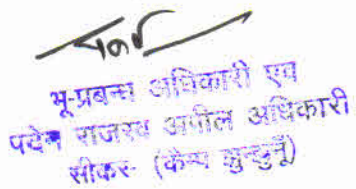 भू-प्रबन्ध अधिकारी एव
पदेन राजस्व अपील अधिकारी
सीकर- (कैम्प झुन्झुनूं)